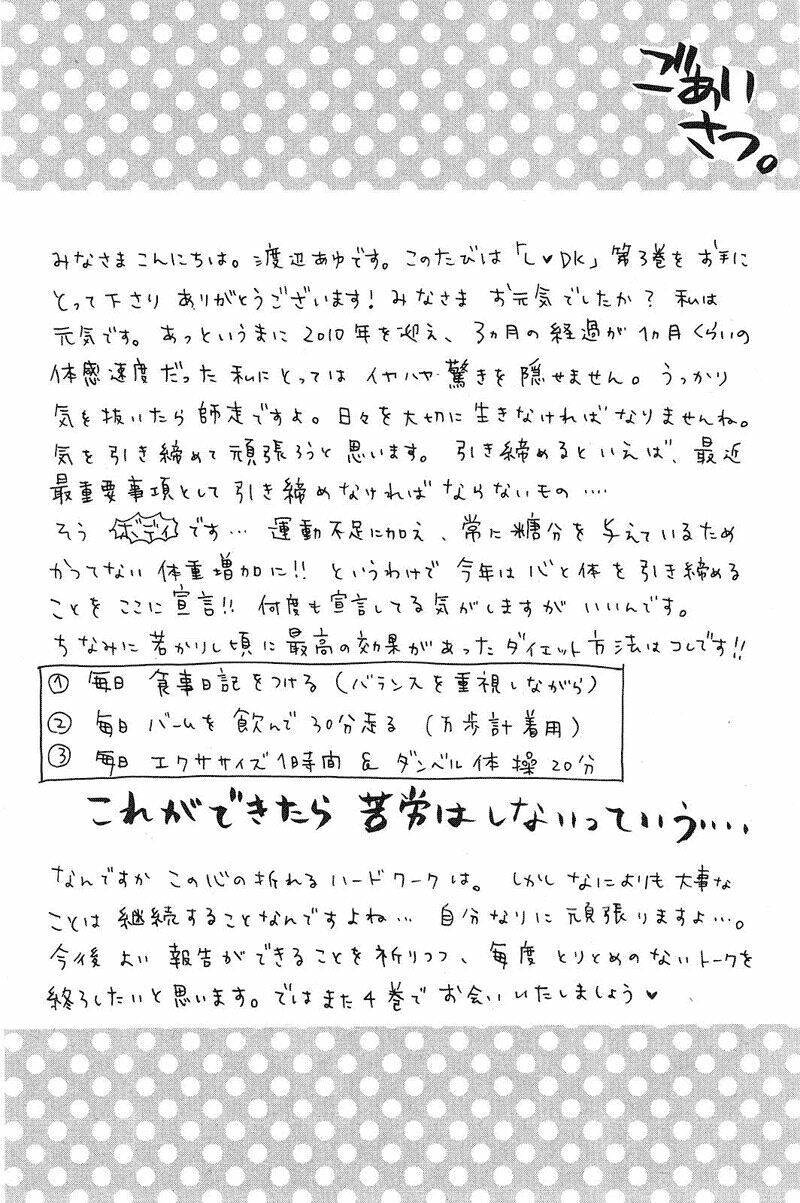 ごあい
さつ。
みなさまこんにちは。渡辺あゆです。このたびは「L♥DK」第3巻をお手に
とって下さり ありがとうございます！みなさま お元気でしたか？ 私は
元気です。あっというまに 2010年を迎え、3ヵ月の経過が1ヵ月くらいの
体感速度だった 私にとっては イヤハヤ 驚きを隠せません。うっかり
気を抜いたら師走ですよ。日々を大切に生きなければなりませんね。
気を引き締めて頑張ろうと思います。引き締めるといえば、最近
最重要事項として引き締めなければならないもの‥‥
そう ボディ です… 運動不足に加え、常に糖分を与えているため
かつてない 体重増加に!! というわけで 今年は心と体を引き締める
ことを ここに宣言!! 何度も宣言してる気がしますが いいんです。
ちなみに若かりし頃に最高の効果があったダイエット方法はコレです!!
① 毎日 食事日記をつける（バランスを重視しながら）
② 毎日 バームを飲んで30分走る（万歩計着用）
③ 毎日 エクササイズ1時間 & ダンベル体操20分
これができたら 苦労は しないっていう‥‥
なんですか この心の折れるハードワークは。しかしなによりも大事な
ことは継続することなんですよね… 自分なりに頑張りますよ…。
今後 よい報告ができることを祈りつつ、毎度 とりとめのないトークを
終ろしたいと思います。ではまた4巻で お会いいたしましょう♥